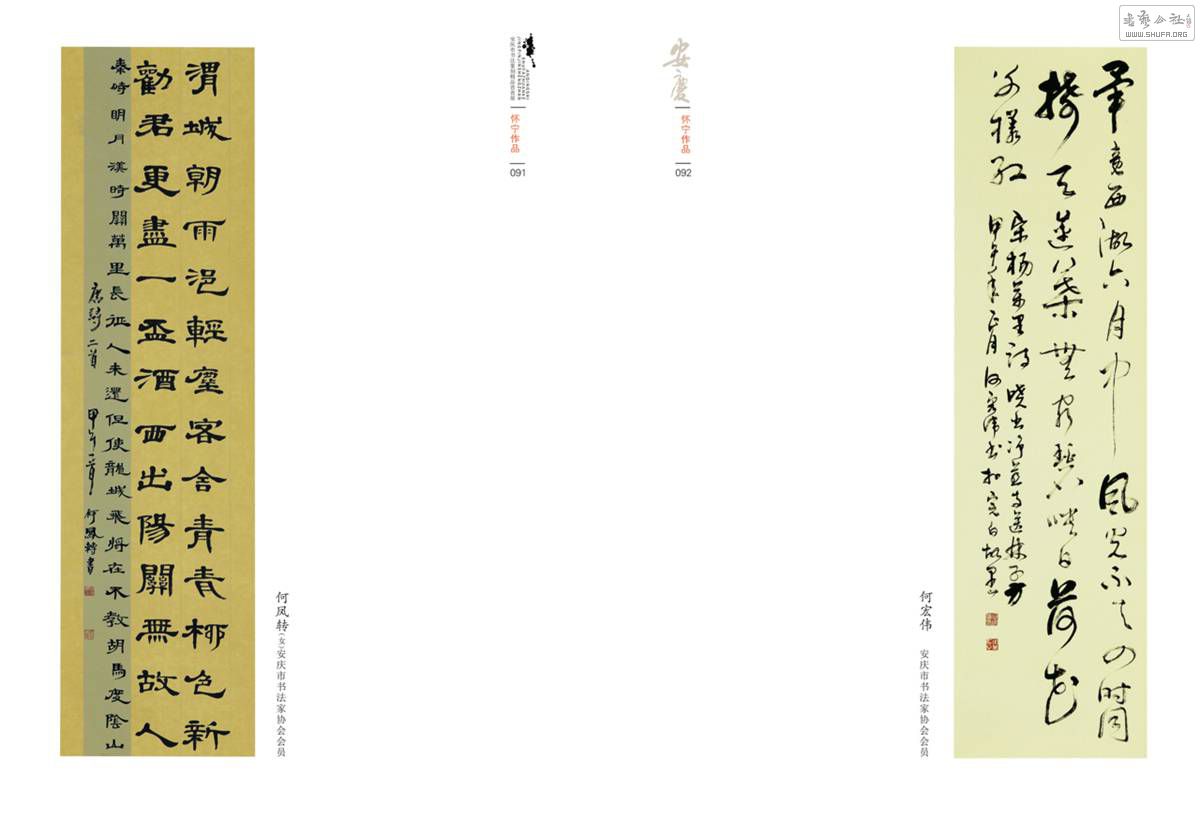 書藝公社
WWW.SHUFA.ORG
渭城朝雨浥輕塵客舍青青柳色新
勸君更盡一盃酒西出陽關無故人
秦時明月漢時關萬里長征人未還但使龍城飛將在不教胡馬度陰山
唐詩二首 甲午二月 何鳳轉書
何凤转（女）安庆市书法家协会会员
怀宁作品
091
安慶
怀宁作品
092
畢竟西湖六月中風光不与四時同
接天蓮葉無窮碧映日荷花
別樣紅
宋楊萬里詩曉出净慈寺送林子方
甲午年正月何宏偉書於完白故里
何宏伟 安庆市书法家协会会员